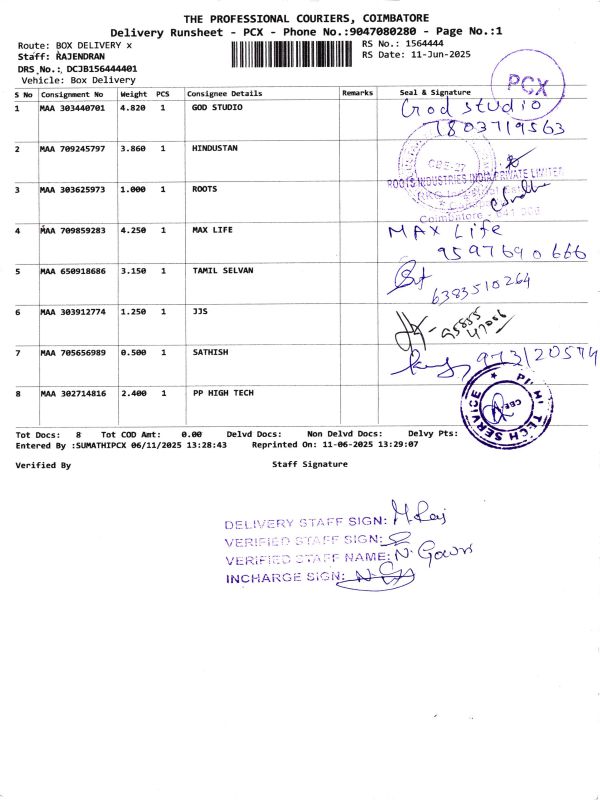 THE PROFESSIONAL COURIERS, COIMBATORE
Delivery Runsheet - PCX - Phone No.:9047080280 - Page No.:1
Route: BOX DELIVERY x
RS No.: 1564444
Staff: RAJENDRAN
RS Date: 11-Jun-2025
DRS No.: DCJB156444401
Vehicle: Box Delivery
PCX
S No Consignment No Weight PCS Consignee Details Remarks Seal & Signature
1 MAA 303440701 4.820 1 GOD STUDIO God studio
7803719563
2 MAA 709245797 3.860 1 HINDUSTAN
CBE-37
ROOTS INDUSTRIES INDIA PRIVATE LIMITED
3 MAA 303625973 1.000 1 ROOTS
Coimbatore - 641 006
4 MAA 709859283 4.250 1 MAX LIFE MAX Life
9597690666
5 MAA 650918686 3.150 1 TAMIL SELVAN
6383510264
6 MAA 303912774 1.250 1 JJS
7 MAA 705656989 0.500 1 SATHISH
8 MAA 302714816 2.400 1 PP HIGH TECH
TECH SERVICE
CBE
Tot Docs: 8 Tot COD Amt: 0.00 Delvd Docs: Non Delvd Docs: Delvy Pts:
Entered By :SUMATHIPCX 06/11/2025 13:28:43 Reprinted On: 11-06-2025 13:29:07
Verified By Staff Signature
DELIVERY STAFF SIGN: M.Raj
VERIFIED STAFF SIGN:
VERIFIED STAFF NAME: N. Gowri
INCHARGE SIGN: